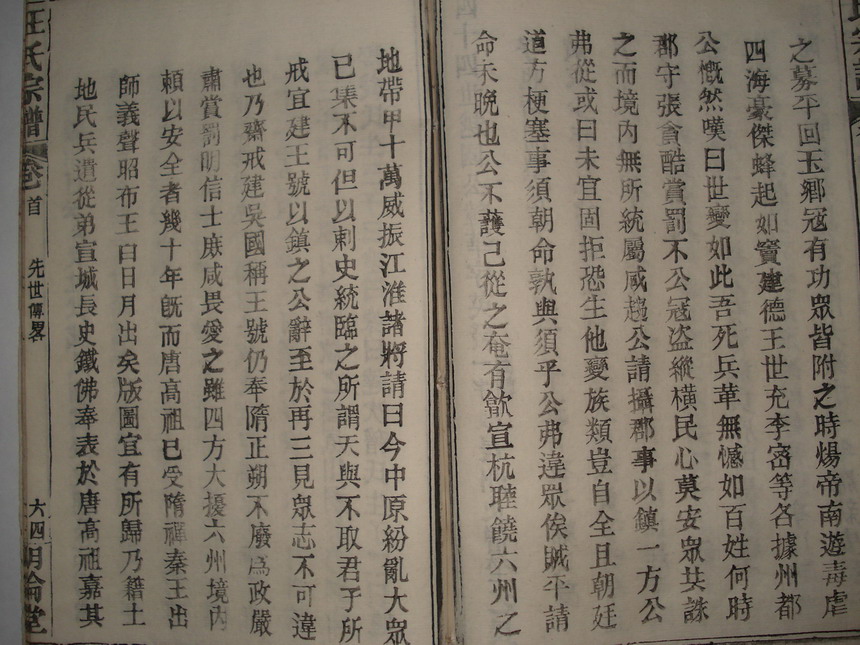 之募平回玉鄉寇有功眾皆附之時煬帝南遊毒虐
四海豪傑蜂起如竇建德王世充李密等各據州都
公慨然嘆曰世變如此吾死兵革無憾如百姓何時
郡守張貪酷賞罰不公寇盗縱橫民心莫安眾共誅
之而境內無所統屬咸趨公請攝郡事以鎮一方公
弗從或曰未宜固拒恐生他變族類豈自全且朝廷
道方梗塞事須朝命孰與須乎公弗違眾俟賊平請
命未晚也公不䕶己從之奄有歙宣杭睦饒六州之
地帶甲十萬威振江淮諸將請曰今中原紛亂大眾
已集不可但以刺史統臨之所謂天與不取君子所
戒宜建王號以鎮之公辭至於再三見眾志不可違
也乃齋戒建吳國稱王號仍奉隋正朔不廢為政嚴
肅賞罰明信士庶咸畏愛之雖四方大擾六州境内
頼以安全者幾十年旣而唐高祖已受隋禪秦王出
師義聲昭布王曰日月出矣版圖宜有所歸乃籍土
地民兵遣從弟宣城長史鐵佛奉表於唐高祖嘉其
汪氏宗譜 卷首 先世傳畧 六四 明倫堂